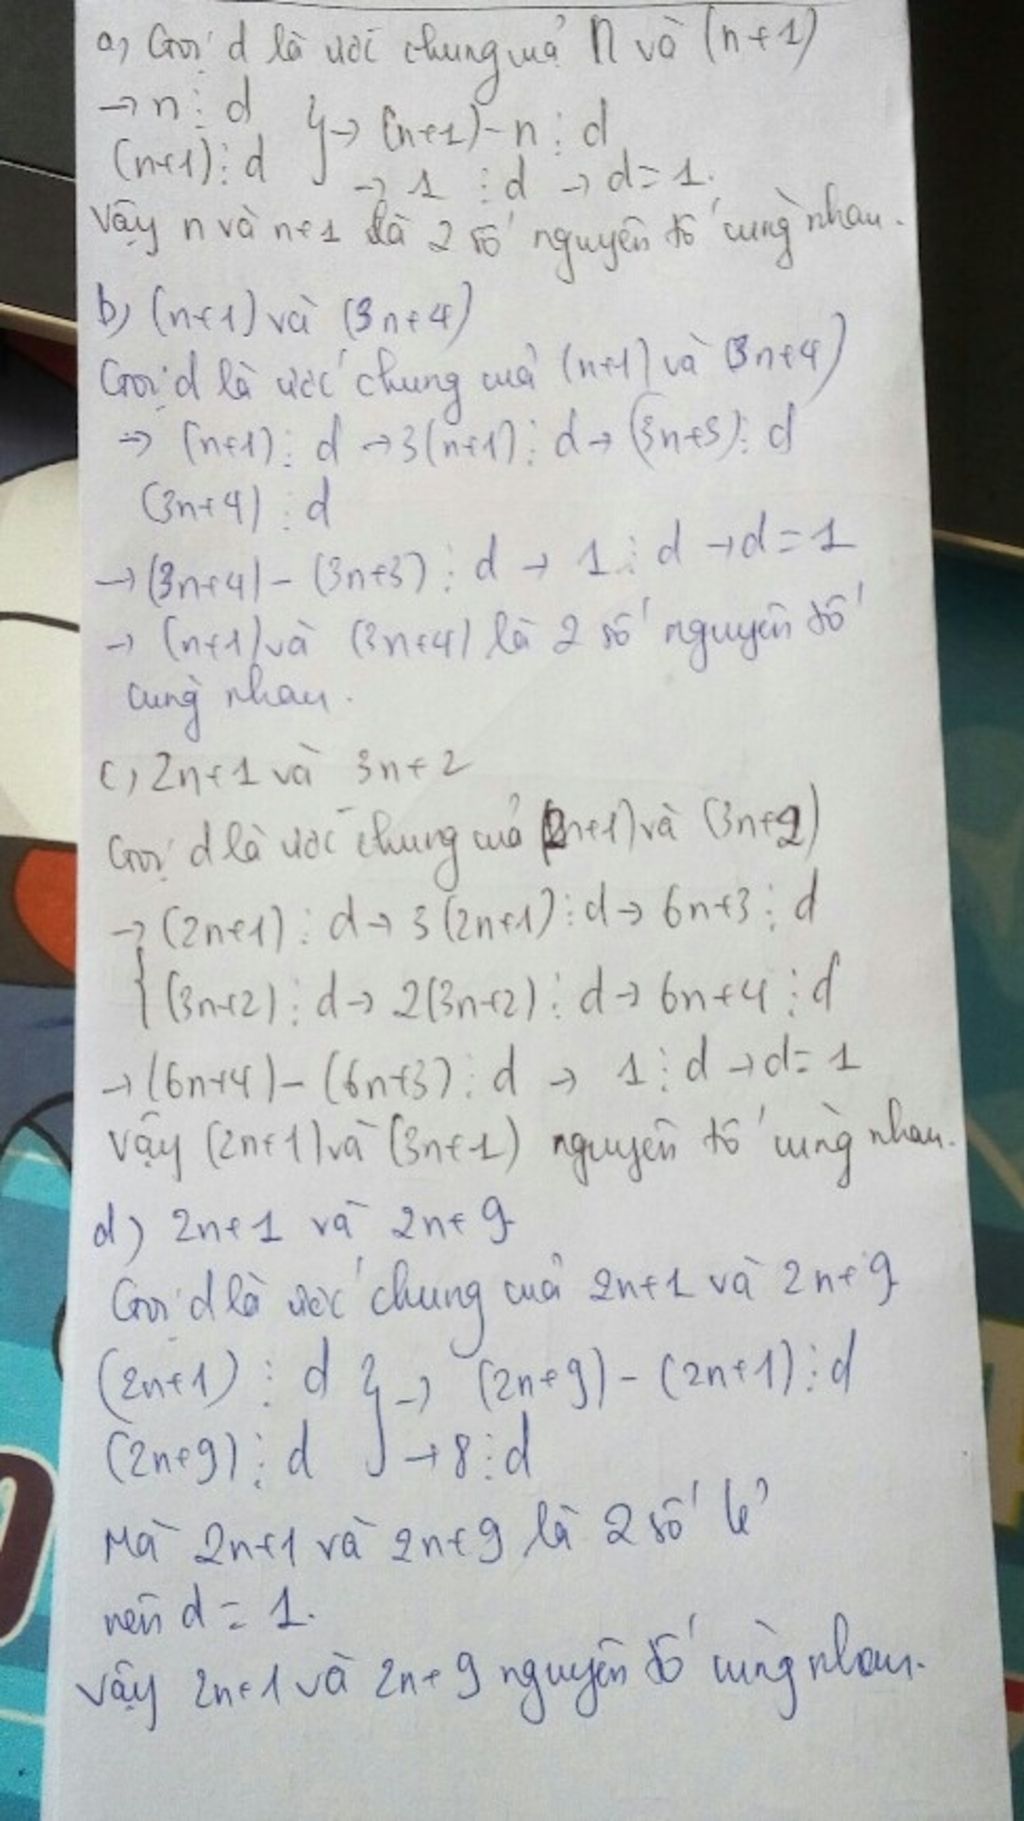 a) Gọi d là ước chung của n và (n+1)
→ n ⋮ d } → (n+1) - n ⋮ d
(n+1) ⋮ d → 1 ⋮ d → d = 1.
Vậy n và n+1 là 2 số nguyên tố cùng nhau.
b) (n+1) và (3n+4)
Gọi d là ước chung của (n+1) và (3n+4)
→ (n+1) ⋮ d → 3(n+1) ⋮ d → (3n+3) ⋮ d
(3n+4) ⋮ d
→ (3n+4) - (3n+3) ⋮ d → 1 ⋮ d → d = 1
→ (n+1) và (3n+4) là 2 số nguyên tố
cùng nhau.
c) 2n+1 và 3n+2
Gọi d là ước chung của (2n+1) và (3n+2)
→ { (2n+1) ⋮ d → 3(2n+1) ⋮ d → 6n+3 ⋮ d
(3n+2) ⋮ d → 2(3n+2) ⋮ d → 6n+4 ⋮ d
→ (6n+4) - (6n+3) ⋮ d → 1 ⋮ d → d = 1
Vậy (2n+1) và (3n+1) nguyên tố cùng nhau.
d) 2n+1 và 2n+9
Gọi d là ước chung của 2n+1 và 2n+9
(2n+1) ⋮ d } → (2n+9) - (2n+1) ⋮ d
(2n+9) ⋮ d → 8 ⋮ d
Mà 2n+1 và 2n+9 là 2 số lẻ
nên d = 1.
Vậy 2n+1 và 2n+9 nguyên tố cùng nhau.